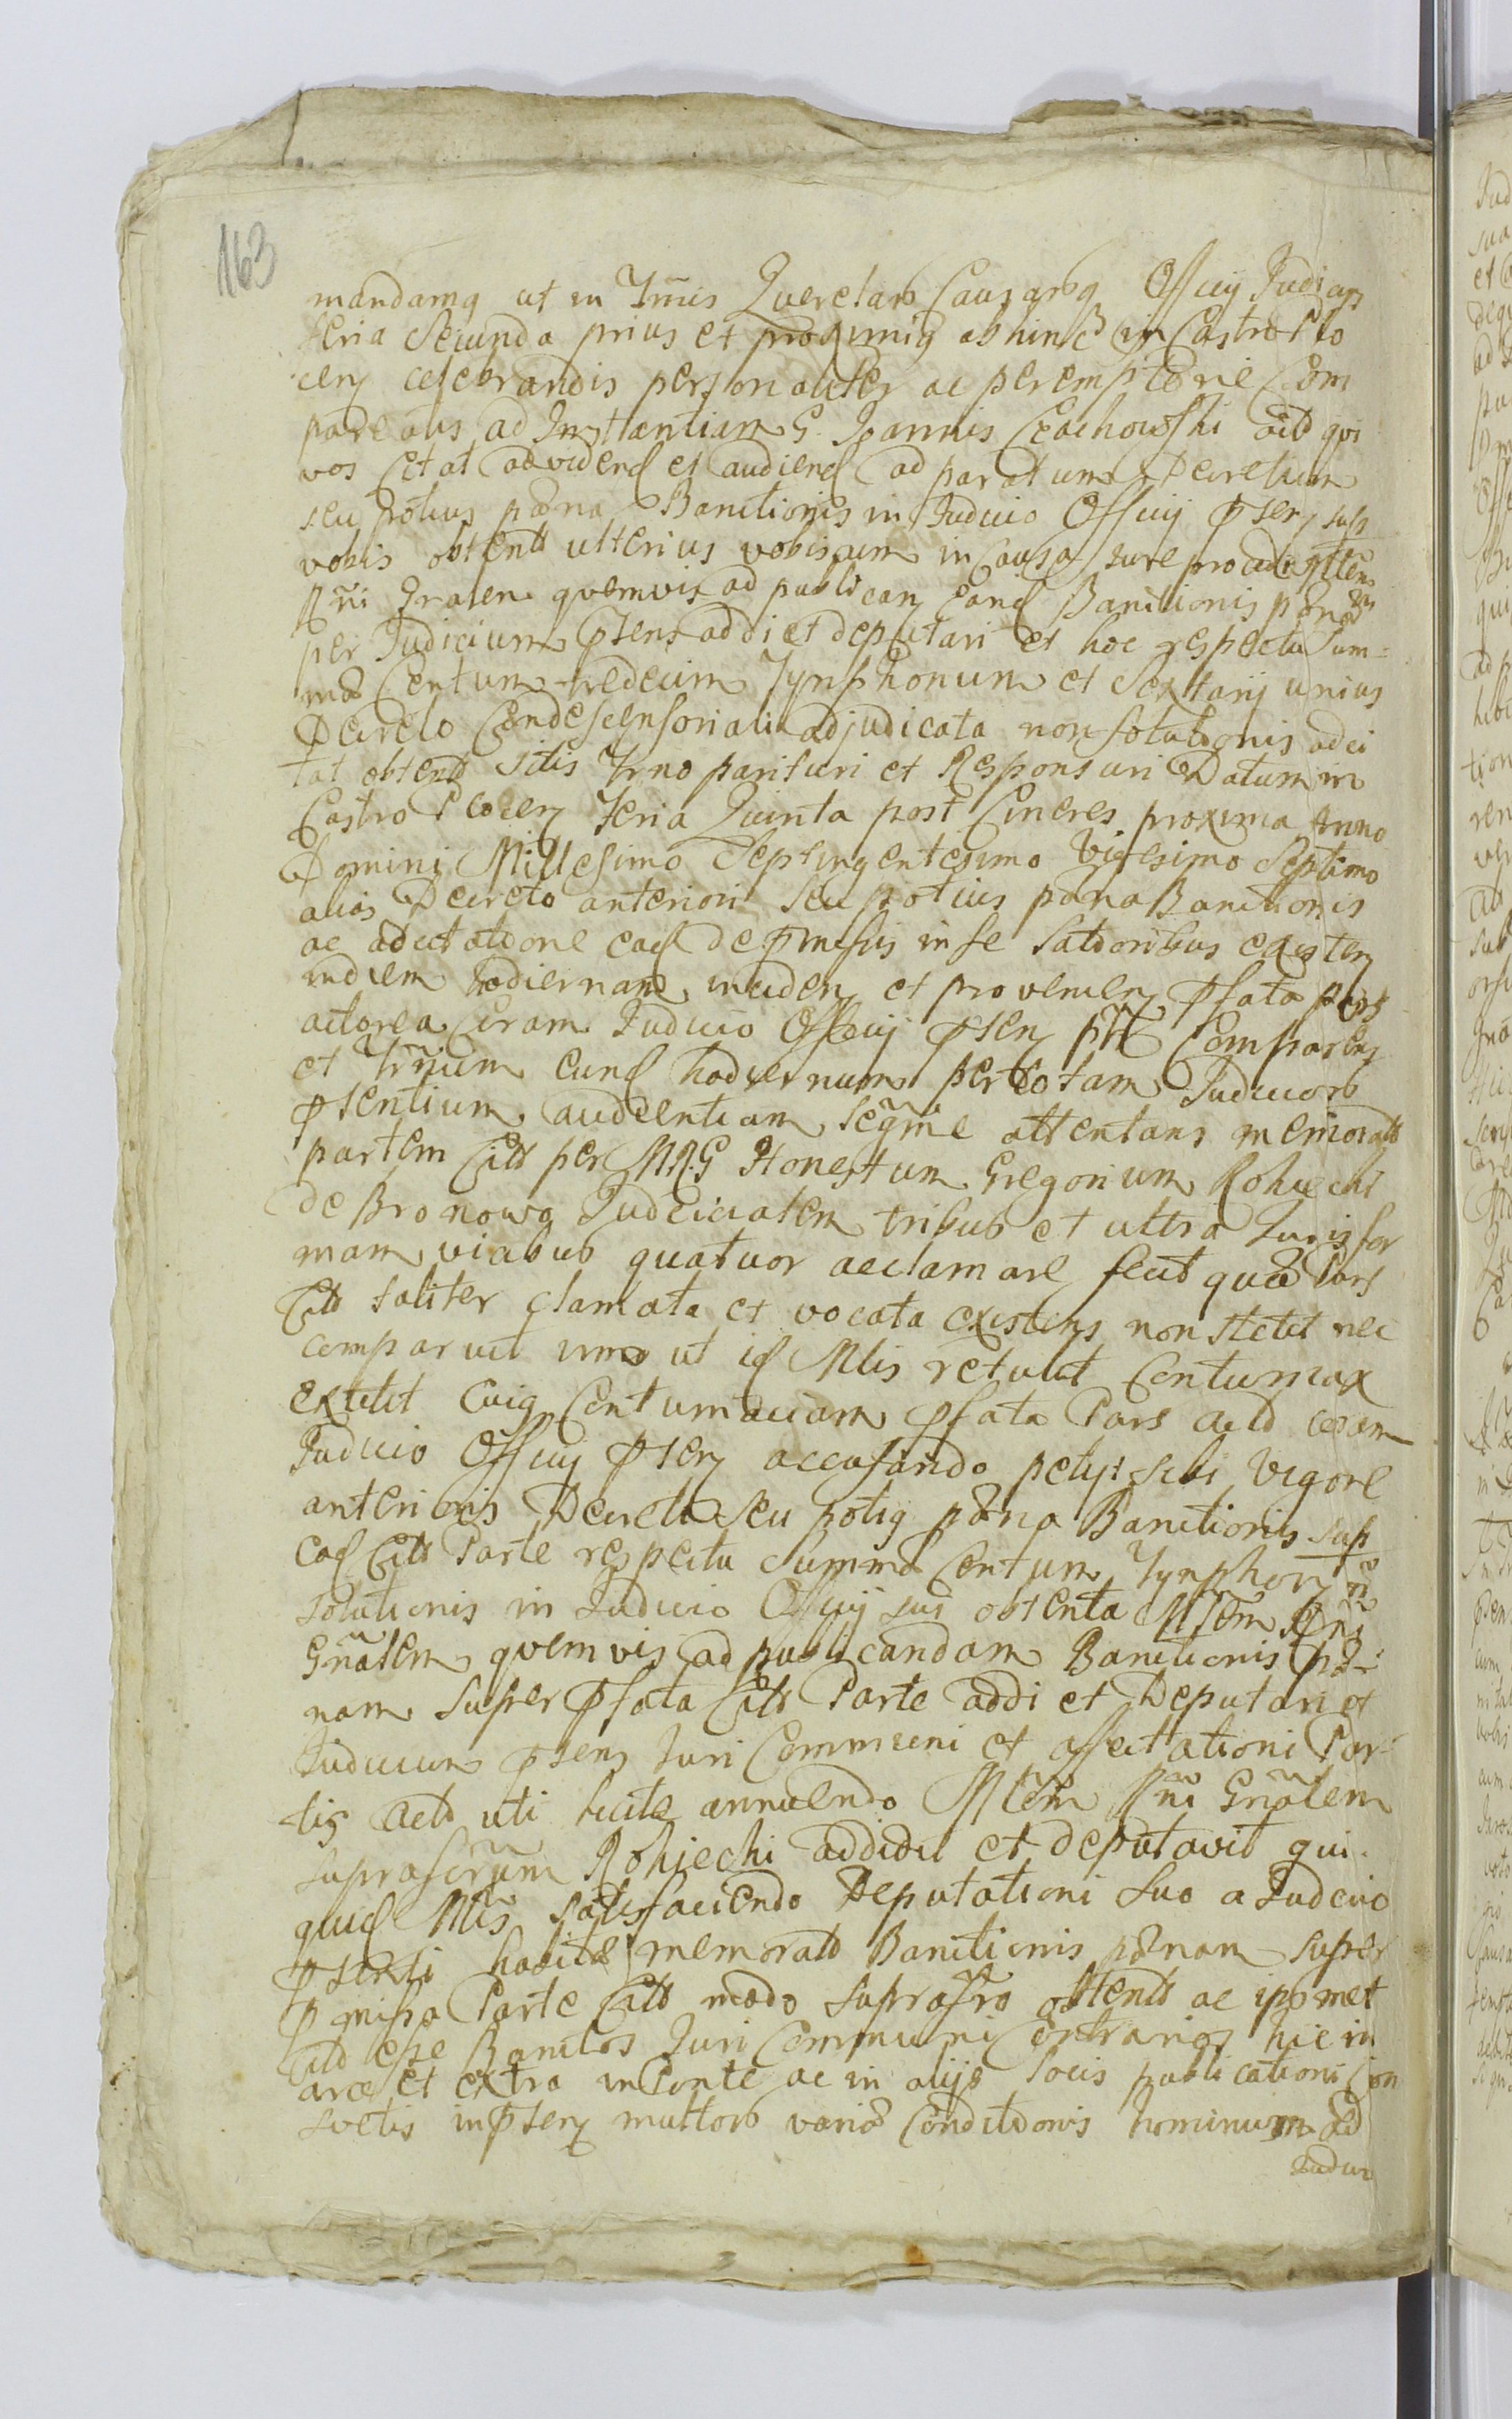 163
mandamq ut in Tmis Querelarb Causarbq Officij Judicij
feria Secunda prius et proximiq abhinc in Castro Plo
cen celebrandis personaliter ac peremptorie Com
pareatis ad Instantiam G. Joannis Czachowski actd qvi
vos Citat ad videnđ et audienđ ad paratum Decretum
seu potius pæna Banitionis in Judicio Officij Psen sup
vobis obtentd ulterius vobiscum in Causa Jure procedi Mlem
Rñi Gralem quemvis ad publicanđ eanđ Banitionis pænam
per Judicium Psens addi et deputari et hoc respectu Sum=
mæ Centum tredecim Tynphonum et Sextarij unius
Decreto Condescensoriali adjudicata non solutionis adci
tat obtentd sitis Trno parituri et Responsuri Datum in
Castro Plocen feria Quinta post Cineres proxima Anno
Domini Millesimo Septingentesimo Vigesimo Septimo
alias Decreto anteriori Seu potius pæna Banitionis
ac adcitatione eađ de Pmissis in se Latioribus existen
indiem hodiernam inciden et provenien Pfata Pars
actorea Coram Judicio Officij Psen ptt Comparens
et Trnium eunđ hodiernum per totam Judiciorb
Psentium audientiam legme attentans memoratd
partem Citd per MRG Honestum Gregorium Rohiechi
de Bronowo Judicialem tribus et ultra Juris for
mam viabus quatuor acclamare fecit quæ Pars
Citd taliter clamata et vocata existens non stetit nec
comparuit imo ut iđ Mlis retulit Contumax
extitit Cuiq Contumaciam Pfata Pars actd coram
Judicio Officij Psen accusando petijt sibi Vigore
anterioris Decreti seu potiq pæna Banitionis sup
eađ Citd Parte respectu Summæ Centum Tynphon
solutionis in Judicio Officij sui obtenta Mlem Rñi
Gñalem quemvis ad publicandam Banitionis pæ-
nam super Pfata Citd Parte addi et Deputari et
Judicium Psens Juri Communi et affectationi Par-
tis Actd uti licite annuendo Mlem Rñi Gñalem
suprascrum Rohiechi addidit et deputavit qui-
quiđ Mlis satisfaciendo Deputationi suo a Judicio
Psenti habitæ memoratd Banitionis pænam super
Pmissa Parte Citd modo suprascro obtentd ac ipsmet
Citd esse Banitos Juri Communi Contrarios hic in
arce et extra in Ponte ac in alijs locis publicationi Con
svetis in Psen multorb variæ Conditionis hominum ad
Judicio